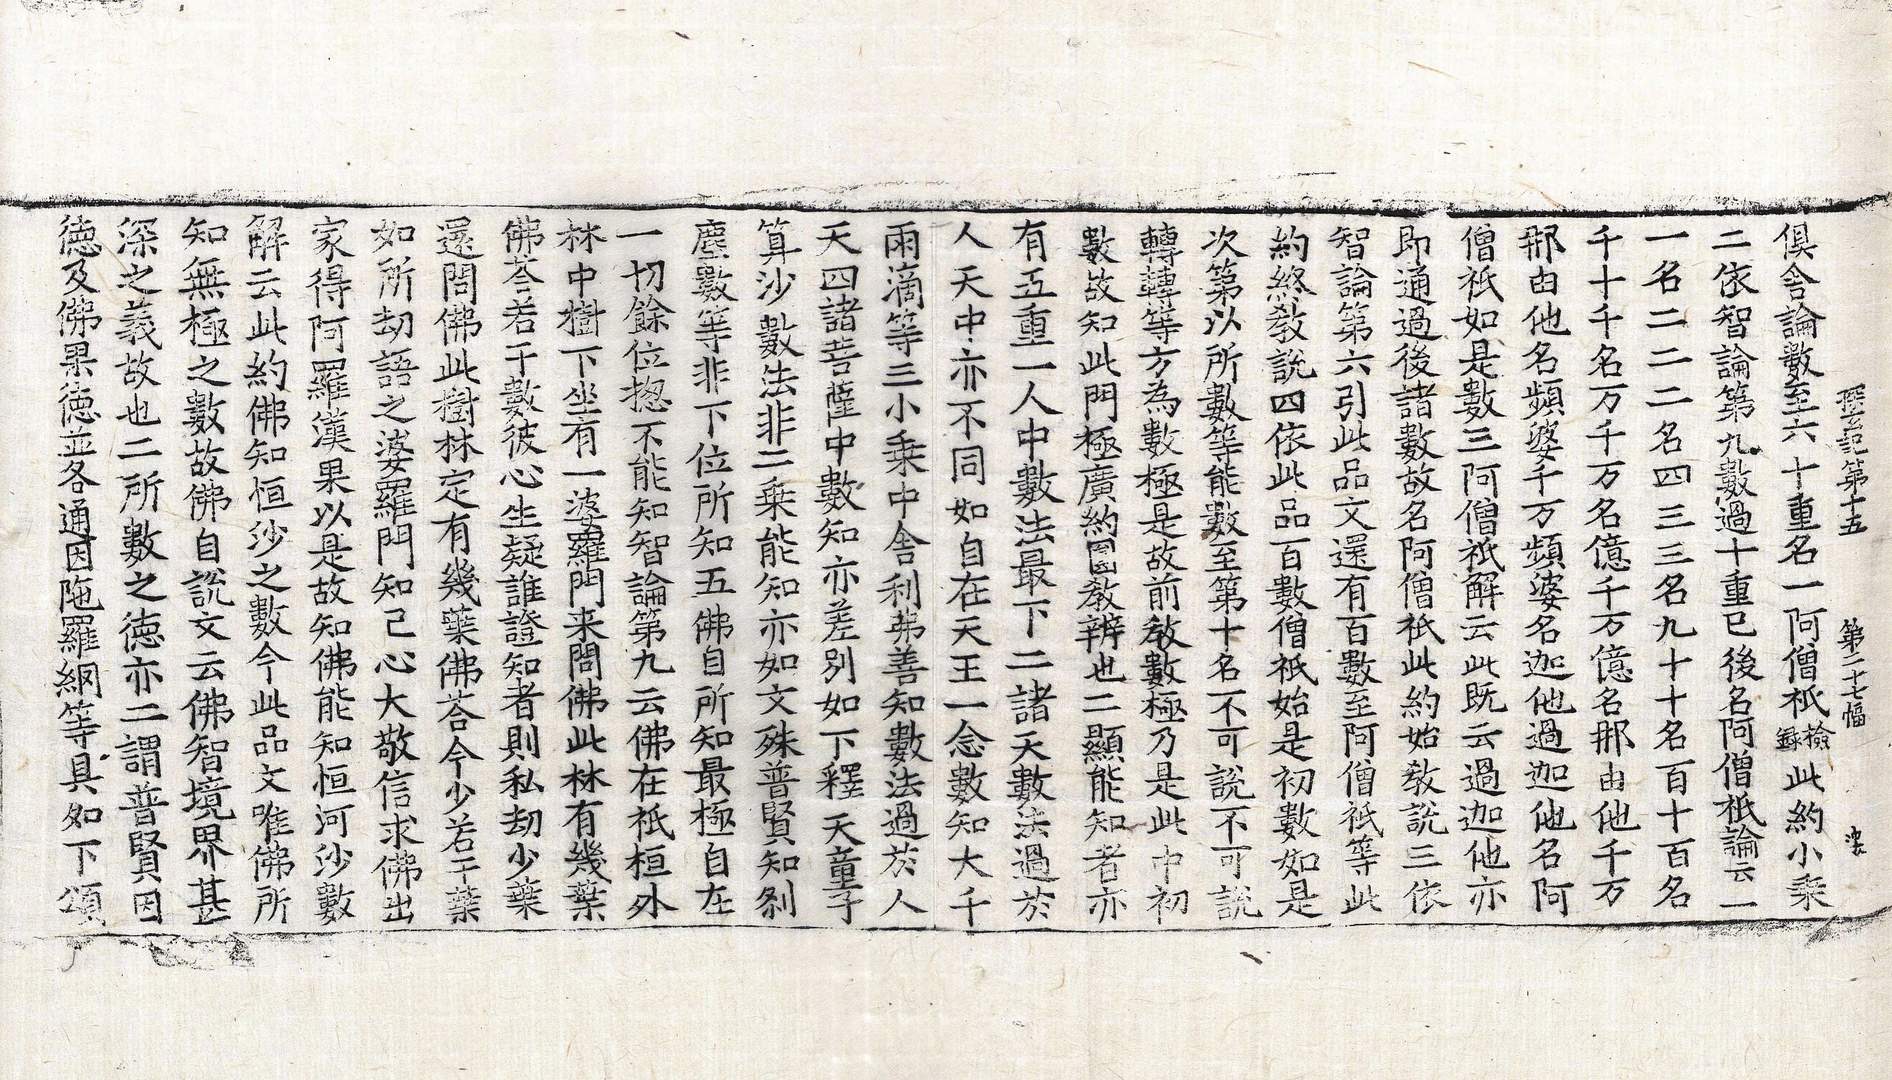 探玄記第十五 第二十七幅
俱舎論數至六十重名一阿僧祇檢錄此約小乘
二依智論第九數過十重已後名阿僧祇論云一
一名二二二名四三三名九十十名百十百名
千十千名万千万名億千万億名那由他千万
那由他名頻婆千万頻婆名迦他過迦他名阿
僧祇如是數三阿僧祇解云此既云過迦他亦
即通過後諸數故名阿僧祇此約始敎說三依
智論第六引此品文還有百數至阿僧祇等此
約終敎說四依此品百數僧祇始是初數如是
次第以所數等能數至第十名不可說不可說
轉轉等方為數極是故前敎數極乃是此中初
數故知此門極廣約圎敎辨也二顯能知者亦
有五重一人中數法最下二諸天數法過於
人天中亦不同如自在天王一念數知大千
雨滴等三小乘中舎利弗善知數法過於人
天四諸菩薩中數知亦差別如下釋天童子
算沙數法非二乘能知亦如文殊普賢知剎
塵數等非下位所知五佛自所知最極自在
一切餘位揔不能知智論第九云佛在祇桓外
林中樹下坐有一婆羅門来問佛此林有幾葉
佛荅若干數彼心生疑誰證知者則私刼少葉
還問佛此樹林定有幾葉佛荅今少若干葉
如所刼語之婆羅門知己心大敬信求佛出
家得阿羅漢果以是故知佛能知恒河沙數
解云此約佛知恒沙之數今此品文唯佛所
知無極之數故佛自說文云佛智境界甚
深之義故也二所數之德亦二謂普賢因
徳及佛果徳並各通因陁羅網等具如下頌